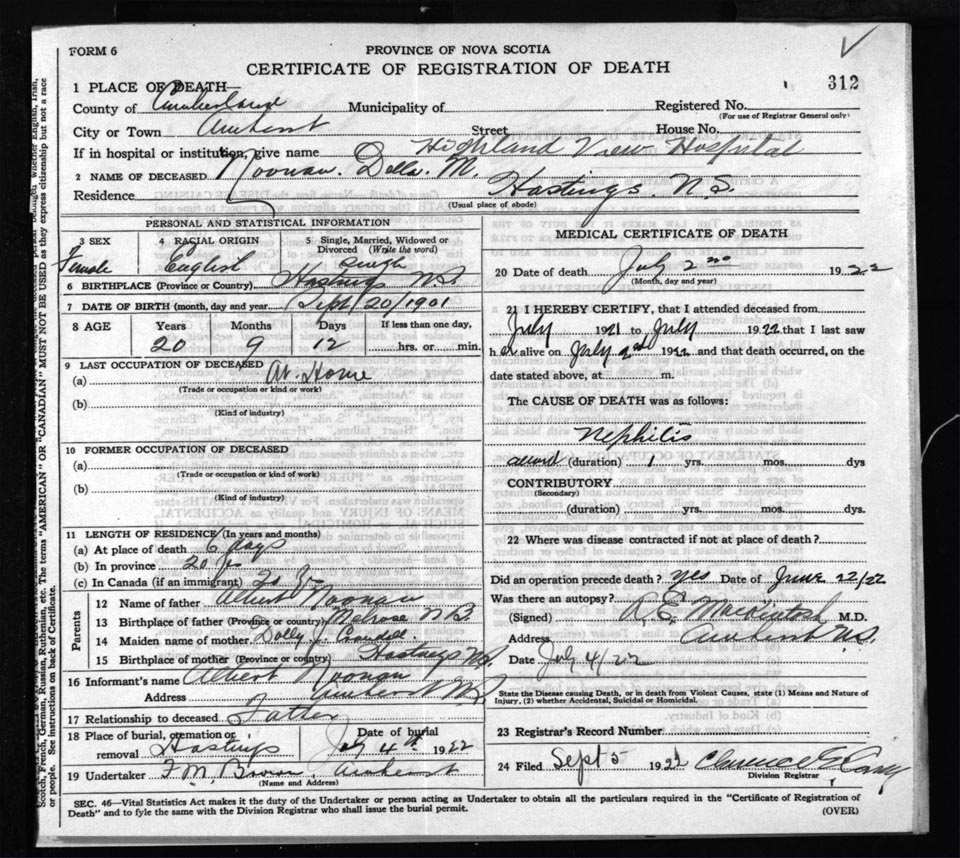 FORM 6
PROVINCE OF NOVA SCOTIA
CERTIFICATE OF REGISTRATION OF DEATH
312
1 PLACE OF DEATH—
County of Cumberland Municipality of Registered No.
(For use of Registrar General only)
City or Town Amherst Street House No.
If in hospital or institution, give name Highland View Hospital
2 NAME OF DECEASED Noonan. Della. M.
Residence Hastings N.S.
(Usual place of abode)
PERSONAL AND STATISTICAL INFORMATION
3 SEX 4 RACIAL ORIGIN 5 Single, Married, Widowed or Divorced (Write the word)
Female English Single
6 BIRTHPLACE (Province or Country) Hastings N.S.
7 DATE OF BIRTH (month, day and year) Sept 20/1901
8 AGE Years Months Days If less than one day,
20 9 12 hrs. or min.
9 LAST OCCUPATION OF DECEASED
(a) At Home
(Trade or occupation or kind or work)
(b)
(Kind of industry)
10 FORMER OCCUPATION OF DECEASED
(a)
(Trade or occupation or kind of work)
(b)
(Kind of industry)
11 LENGTH OF RESIDENCE (In years and months)
(a) At place of death 6 days
(b) In province 20 yrs
(c) In Canada (if an immigrant) 20 yrs
Parents
12 Name of father Albert Noonan
13 Birthplace of father (Province or country) Melrose N.B.
14 Maiden name of mother Dolly Crandal.
15 Birthplace of mother (Province or country) Hastings N.S.
16 Informant's name Albert Noonan
Address Amherst NS
17 Relationship to deceased Father
18 Place of burial, cremation or removal Hastings Date of burial July 4th 1922
19 Undertaker F. M. Brown, Amherst
(Name and Address)
MEDICAL CERTIFICATE OF DEATH
20 Date of death July 2nd 1922
(Month, day and year)
21 I HEREBY CERTIFY, that I attended deceased from
July 1921 to July 1922 that I last saw
her alive on July 2nd 1922 and that death occurred, on the
date stated above, at m.
The CAUSE OF DEATH was as follows:
Nephitis
(duration) 1 yrs. mos. dys
CONTRIBUTORY
(Secondary)
(duration) yrs. mos. dys.
22 Where was disease contracted if not at place of death?
Did an operation precede death? yes Date of June 22/22
Was there an autopsy?
(Signed) R. E. Mackintosh M.D.
Address Amherst N.S.
Date July 4/22
State the Disease causing Death, or in death from Violent Causes, state (1) Means and Nature of
Injury, (2) whether Accidental, Suicidal or Homicidal.
23 Registrar's Record Number
24 Filed Sept 5 1922 Clarence
Division Registrar
SEC. 46—Vital Statistics Act makes it the duty of the Undertaker or person acting as Undertaker to obtain all the particulars required in the "Certificate of Registration of
Death" and to fyle the same with the Division Registrar who shall issue the burial permit. (OVER)
Scotch, French, German, Russian, Ruthenian, etc. The terms "AMERICAN" OR "CANADIAN" MUST NOT BE USED as they express citizenship but not a race
or people. See instructions on back of Certificate.